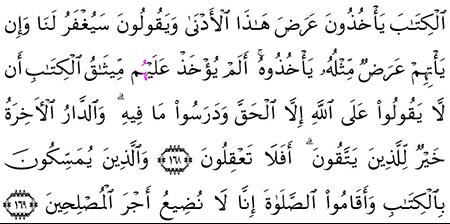 ٱلْكِتَٰبَ يَأْخُذُونَ عَرَضَ هَٰذَا ٱلْأَدْنَىٰ وَيَقُولُونَ سَيُغْفَرُ لَنَا وَإِن
يَأْتِهِمْ عَرَضٌ مِّثْلُهُۥ يَأْخُذُوهُ ۚ أَلَمْ يُؤْخَذْ عَلَيْهُم مِّيثَٰقُ ٱلْكِتَٰبِ أَن
لَّا يَقُولُوا۟ عَلَى ٱللَّهِ إِلَّا ٱلْحَقَّ وَدَرَسُوا۟ مَا فِيهِ ۗ وَٱلدَّارُ ٱلْأَخِرَةُ
خَيْرٌ لِّلَّذِينَ يَتَّقُونَ ۗ أَفَلَا تَعْقِلُونَ ﴿١٦٨﴾ وَٱلَّذِينَ يُمَسِّكُونَ
بِٱلْكِتَٰبِ وَأَقَامُوا۟ ٱلصَّلَوٰةَ إِنَّا لَا نُضِيعُ أَجْرَ ٱلْمُصْلِحِينَ ﴿١٦٩﴾